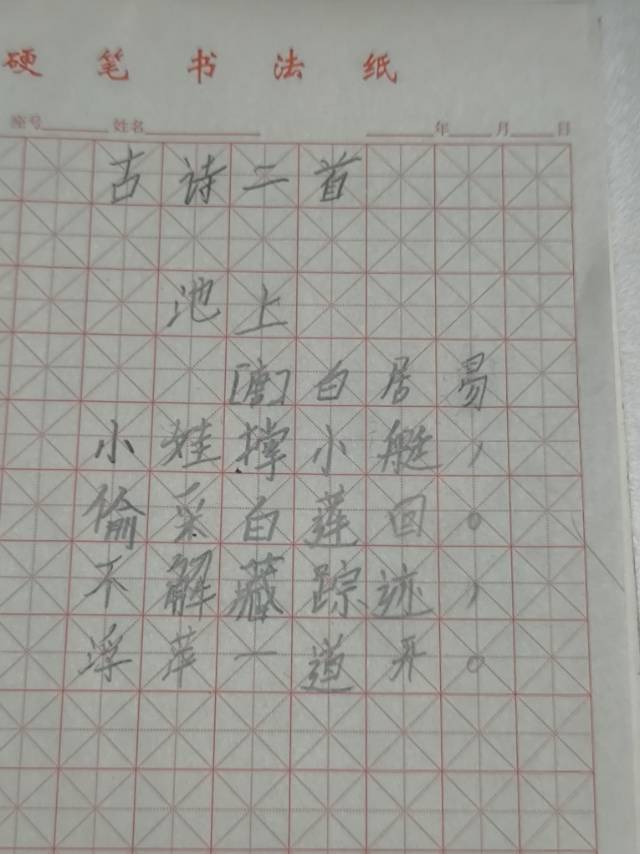 硬笔书法纸
座号 姓名 年 月 日
古诗二首
池上
[唐]白居易
小娃撑小艇，
偷采白莲回。
不解藏踪迹，
浮萍一道开。